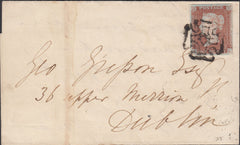 POSTAGE
Geo Grierson Esq
36 upper Merrion St
Dublin